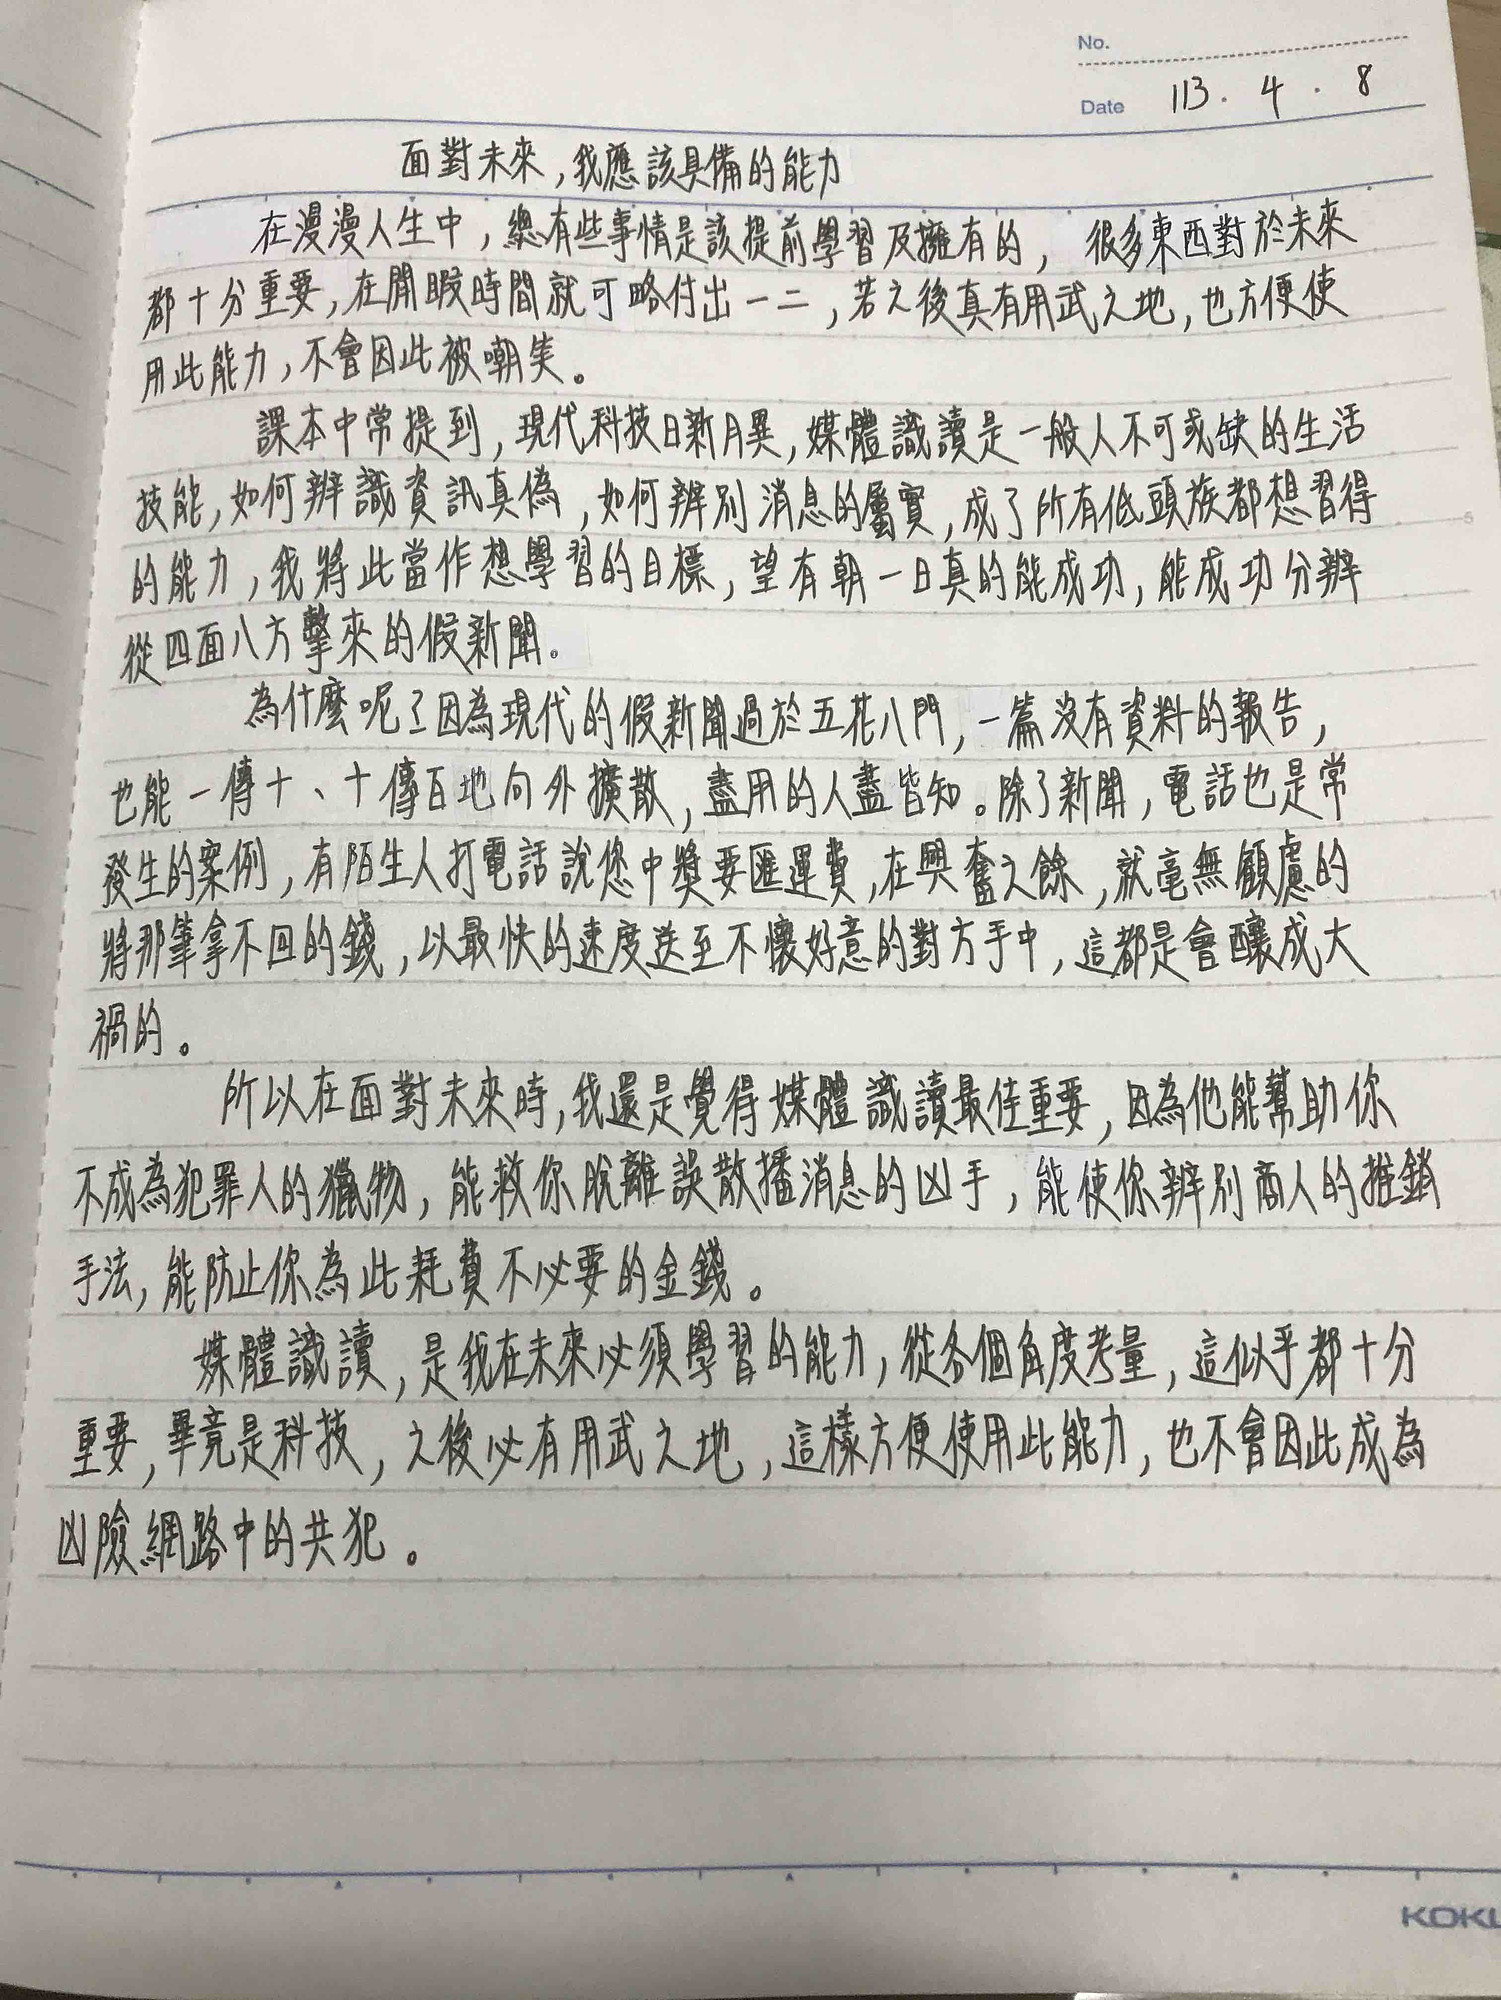 No.
Date 113.4.8
面對未來,我應該具備的能力
在漫漫人生中,總有些事情是該提前學習及擁有的, 很多東西對於未來
都十分重要,在閒暇時間就可略付出一二,若之後真有用武之地,也方便使
用此能力,不會因此被嘲笑。
課本中常提到,現代科技日新月異,媒體識讀是一般人不可或缺的生活
技能,如何辨識資訊真偽,如何辨別消息的屬實,成了所有低頭族都想習得
的能力,我將此當作想學習的目標,望有朝一日真的能成功,能成功分辨
從四面八方擊來的假新聞。
為什麼呢?因為現代的假新聞過於五花八門,一篇沒有資料的報告,
也能一傳十、十傳百地向外擴散,盡用的人盡皆知。除了新聞,電話也是常
發生的案例,有陌生人打電話說您中獎要匯運費,在興奮之餘,就毫無顧慮的
將那筆拿不回的錢,以最快的速度送至不懷好意的對方手中,這都是會釀成大
禍的。
所以在面對未來時,我還是覺得媒體識讀最佳重要,因為他能幫助你
不成為犯罪人的獵物,能救你脫離誤散播消息的凶手,能使你辨別商人的推銷
手法,能防止你為此耗費不必要的金錢。
媒體識讀,是我在未來必須學習的能力,從各個角度考量,這似乎都十分
重要,畢竟是科技,之後必有用武之地,這樣方便使用此能力,也不會因此成為
凶險網路中的共犯。